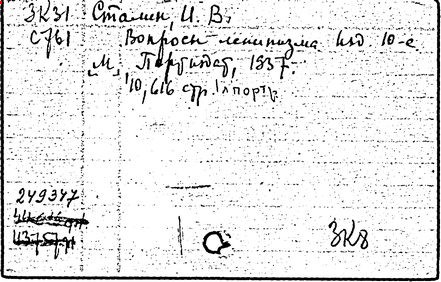 ЗК31 Сталин, И. В.
С761 Вопросы ленинизма. Изд. 10-е
М., Партиздат, 1937.
10, 616 стр. 1 л портр.
249347
ЗК8